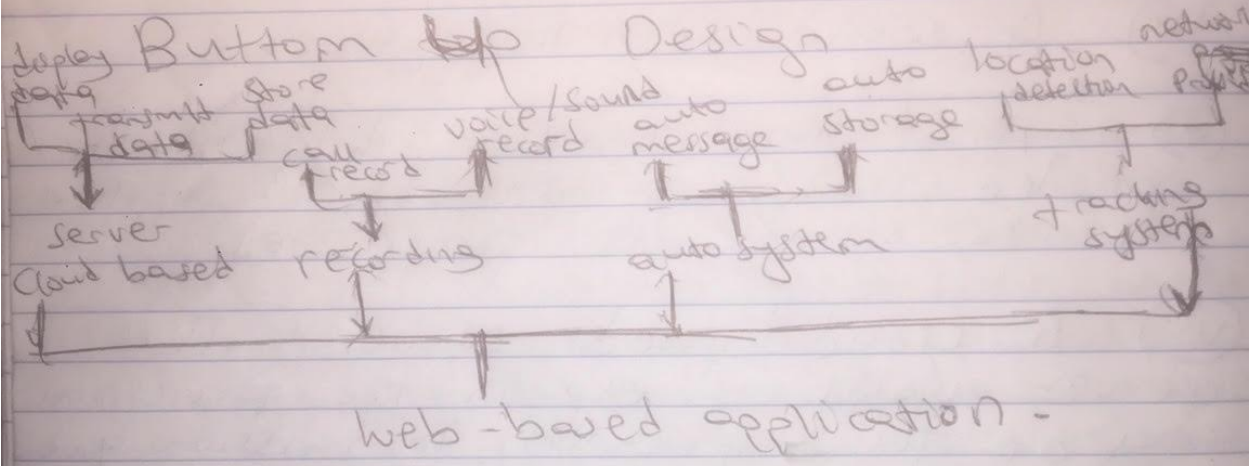 Buttom up Design
display data
transmitt data
store data
call record
voice/sound record
auto message
auto storage
location detection
network
server
Cloud based
recording
auto system
tracking system
web-based application.